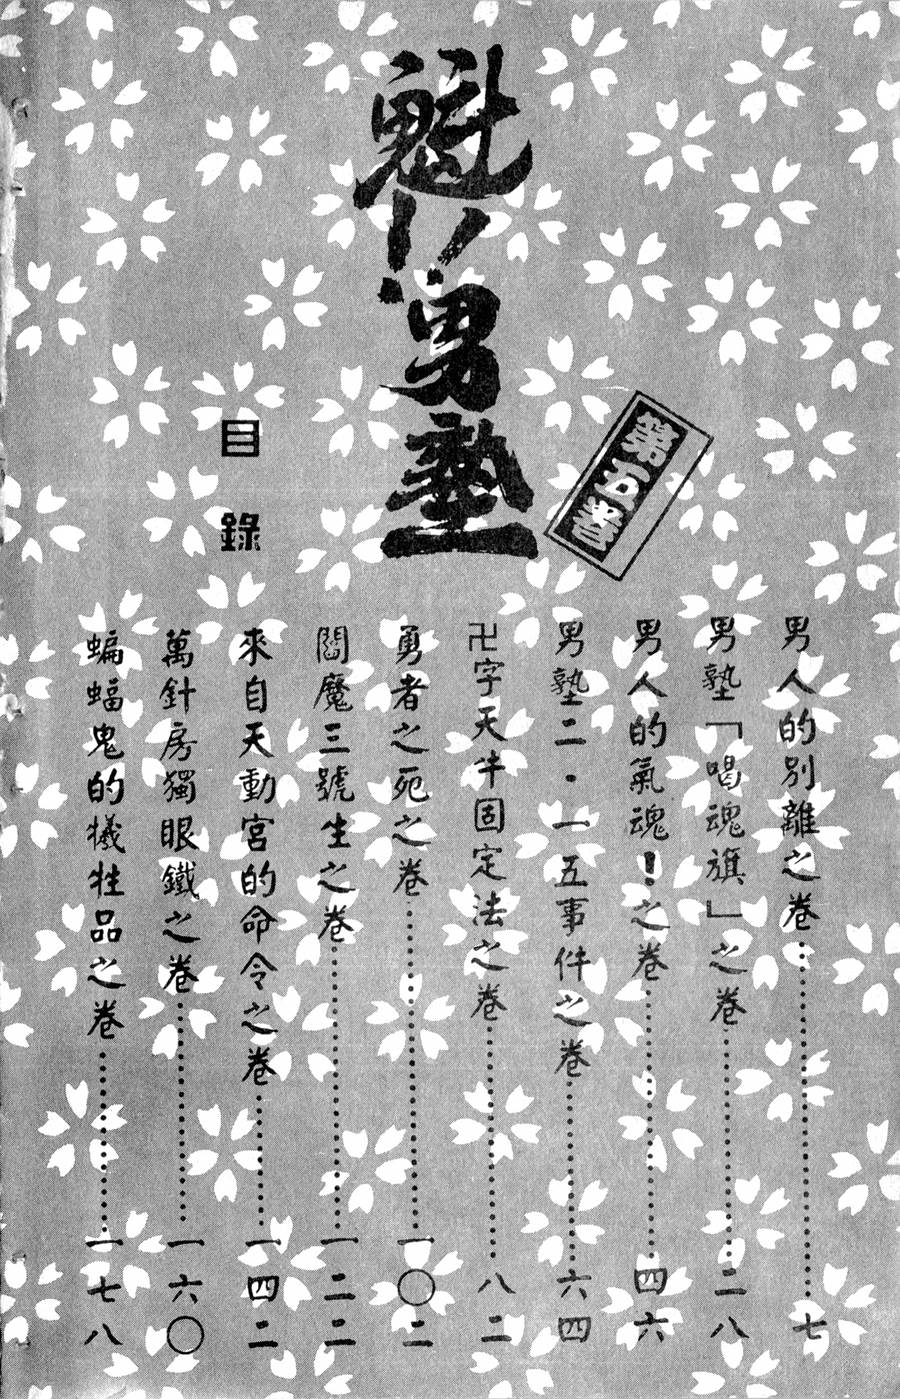 魁!!男塾
第五卷
目錄
男人的別離之卷……七
男塾「喝魂旗」之卷……二八
男人的氣魂!之卷……四六
男塾二・一五事件之卷……六四
卍字天牛固定法之卷……八二
勇者之死之卷……一〇二
閻魔三號生之卷……一二二
來自天動宮的命令之卷……一四二
萬針房獨眼鐵之卷……一六〇
蝙蝠鬼的犧牲品之卷……一七八